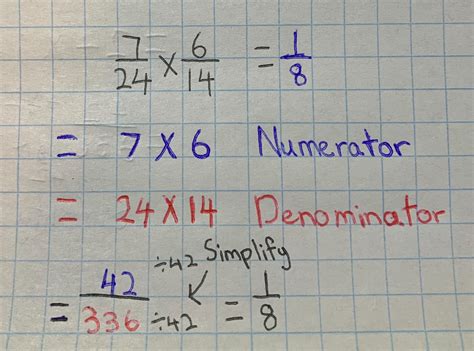 7/24 × 6/14 = 1/8
= 7 × 6 Numerator
= 24 × 14 Denominator
÷42 Simplify
= 42/336 ÷42 = 1/8